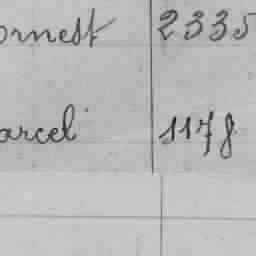 ornest 2335
arcel 1178